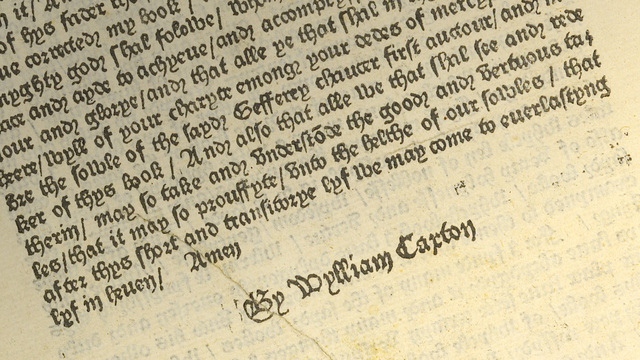 n it/ A
of hys fader
ue corrected my book/
myghty god shal folowe/
ace and ayde to achyeue/and accompl
our and glorye/and that alle ye that shal in
here/wyll of your charyte emong your dedes of mercy
bre the sowle of the sayd Gefferey chaucer first auctour/and
ker of thys book/ And also that alle we that shal see and rede
therin/ may so take and vnderstōde the good and vertuous ta
les/that it may so prouffyte/vnto the helthe of our sowles/ that
after thys short and transitorye lyf we may come to euerlastyng
lyf in heuen/ Amen
By Wylliam Caxton